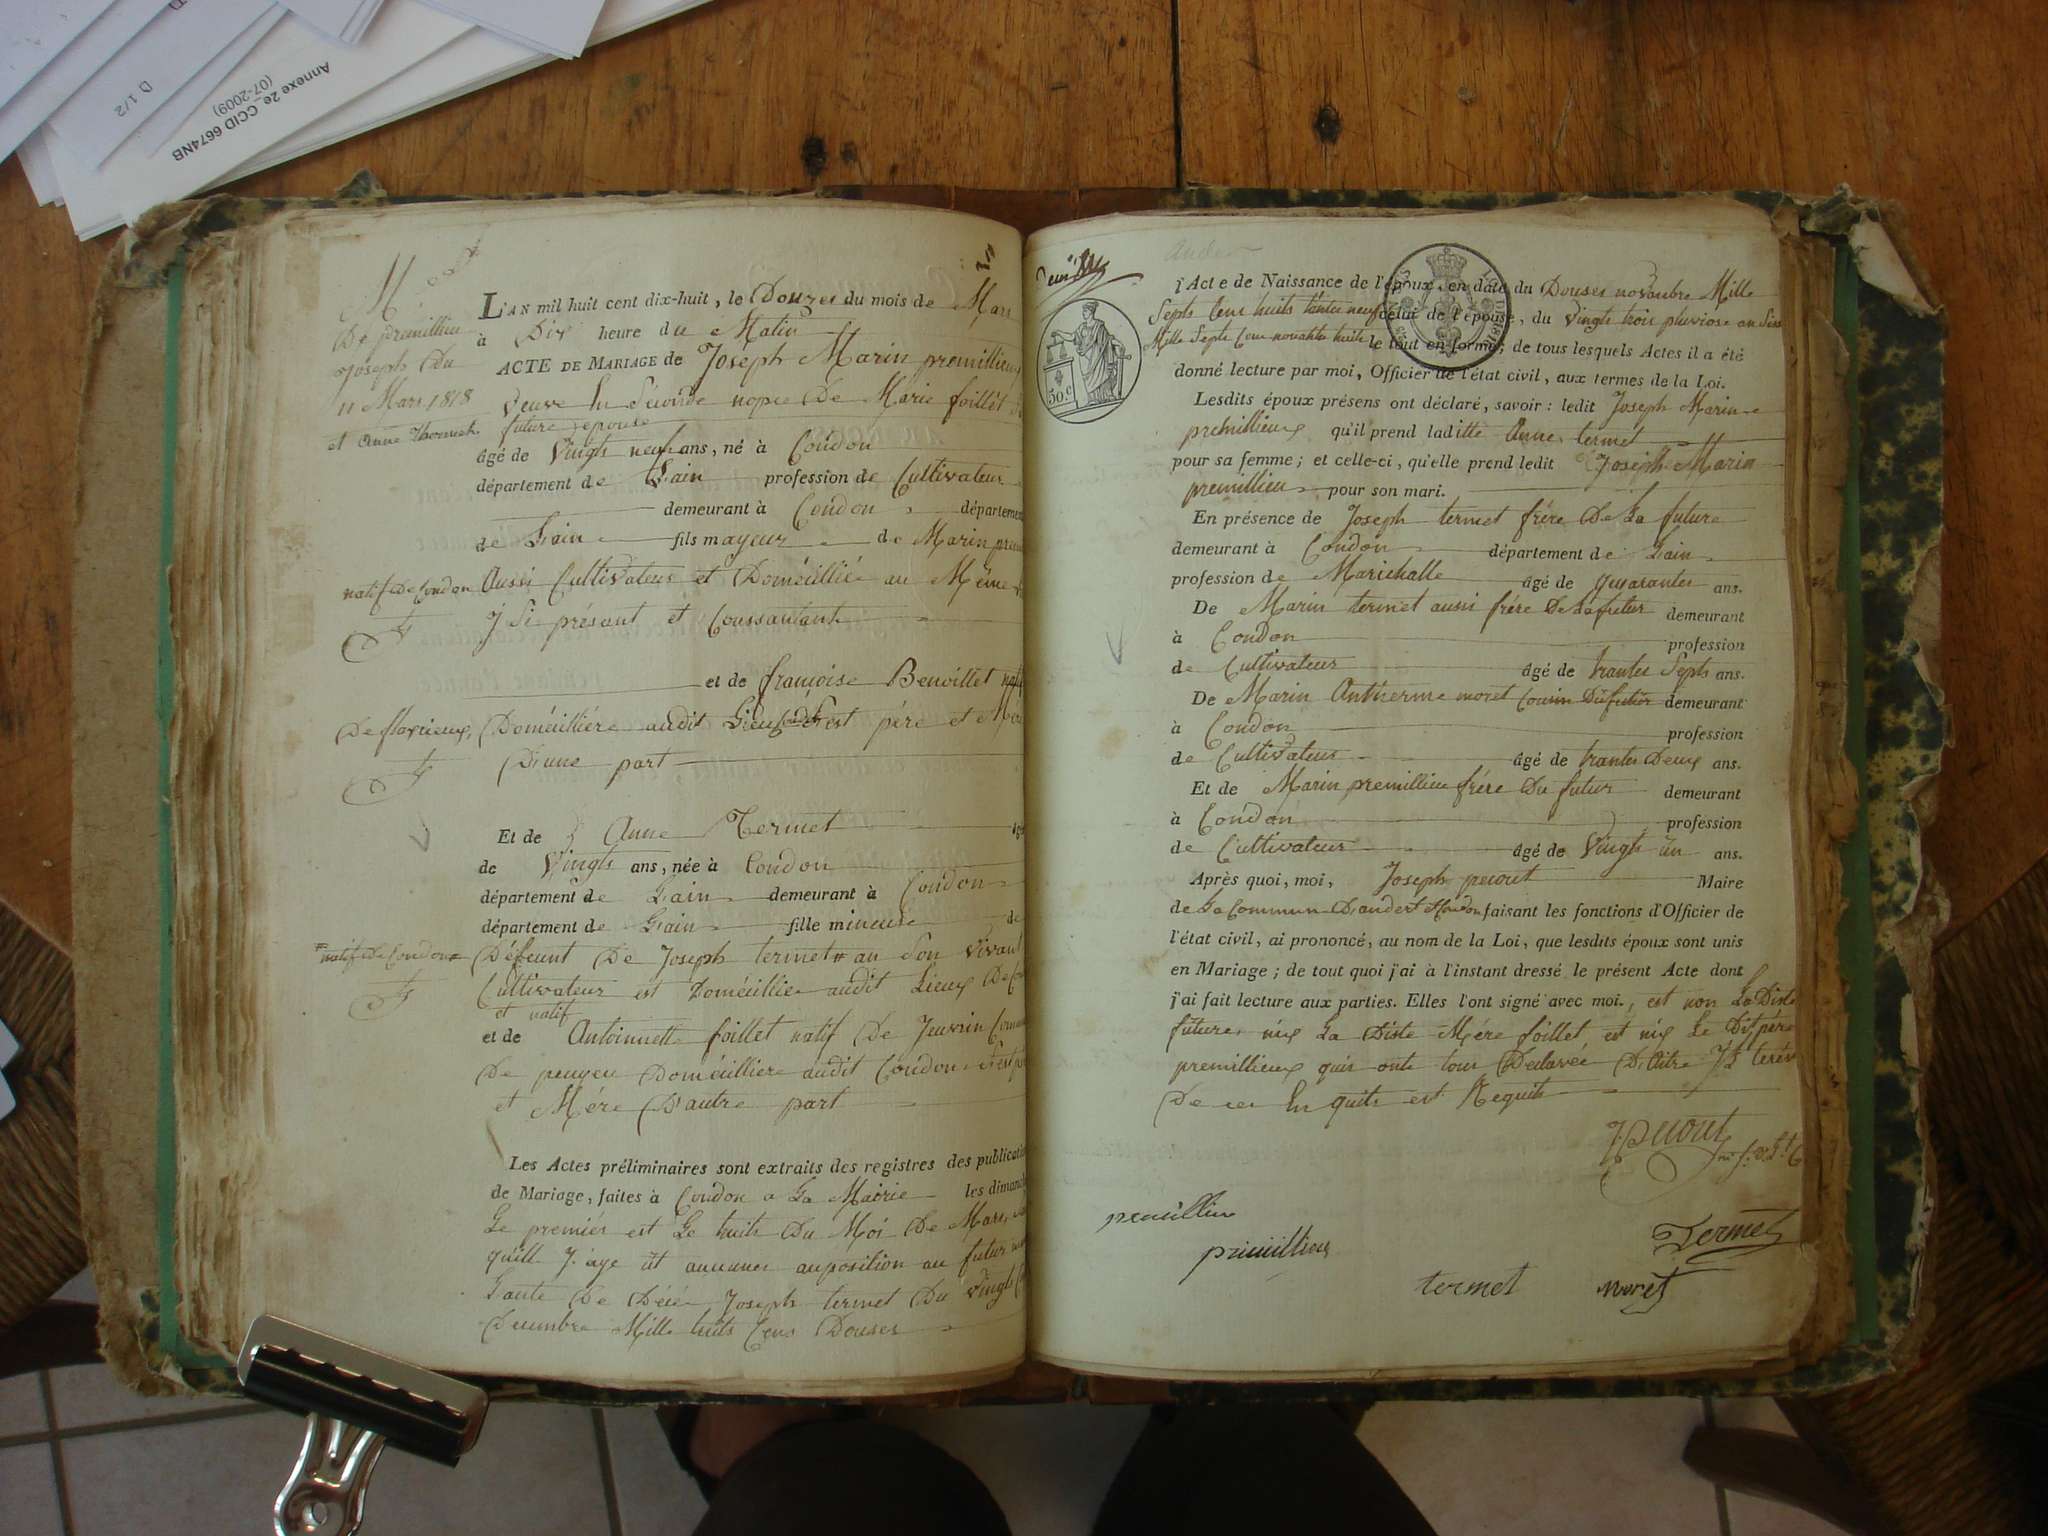 Annexe 2e_CCID 6674NB
(07-2009)
D 1/2
M.
De premillieu
Joseph Du
11 Mars 1818
et Anne Thermet
L'AN mil huit cent dix-huit, le Douzes du mois de Mars
à Dix heure du Matin
ACTE DE MARIAGE de Joseph Marin premillieux
veuve En Séconde nopce De Marie foillet
future epouse
âgé de Vingts neuf ans, né à Condon
département de L'ain profession de Cultivateur
demeurant à Condon département
de L'ain fils mayeur de Marin
natif De Condon Aussi Cultivateur et Doméülliée au Méme
J Si présant et Conssantant
et de françoise Benoillet
De floxieux, Doméülliére audit Lieux Condon est pére et
D'une part
Et de Anne Termet
de Vingts ans, née à Condon
département de L'ain demeurant à Condon
département de L'ain fille mineure de
natif De Condon Défeunt De Joseph termet au Son vivant
Cultivateur est Doméüllie audit Lieux De
et natif
et de Antoinnette foillet natif De Jeuvrin
De peuyeu Doméülliere audit Condon
et Mére D'autre part
Les Actes préliminaires sont extraits des registres des
de Mariage, faites à Condon a La Mairie les
Le premiér est Le huits Du Moi De Mars
quill J. aye ût aucunes auposition au futur
L'aute De Décé Joseph termet Du vingts
Decembre Mille huits Cens Douses
50.c
l'Acte de Naissance de l'époux, en date du Douses novambre Mille
Septs Cens huits tantes neuf celui de l'épouse, du Vingts trois pluviose an Six
Mille Septs Cens novahte huits le tout en forme; de tous lesquels Actes il a été
donné lecture par moi, Officier de l'état civil, aux termes de la Loi.
Lesdits époux présens ont déclaré, savoir : ledit Joseph Marin
premillieux qu'il prend laditte Anne termet
pour sa femme; et celle-ci, qu'elle prend ledit Joseph Marin
premillieu pour son mari.
En présence de Joseph termet frére De La future
demeurant à Condon département de L'ain
profession de Marichalle âgé de quarantes ans.
De Marin termet aussi frére De La futur demeurant
à Condon profession
de Cultivateur âgé de trantes Septs ans.
De Marin Antherme moret Cousin Du futur demeurant
à Condon profession
de Cultivateur âgé de trantes Deux ans.
Et de Marin premillieu frére Du futur demeurant
à Condon profession
de Cultivateur âgé de Vingts ûn ans.
Après quoi, moi, Joseph peront Maire
de La Commun D'andert Condon faisant les fonctions d'Officier de
l'état civil, ai prononcé, au nom de la Loi, que lesdits époux sont unis
en Mariage; de tout quoi j'ai à l'instant dressé le présent Acte dont
j'ai fait lecture aux parties. Elles l'ont signé avec moi., est non La Diste
future, nix La Diste Mére foillet est nix Le Dit pére
premillieux quis onte tous Declareé
De ces En quits est Requits
premillieu
premillieux
Termet
termet moret